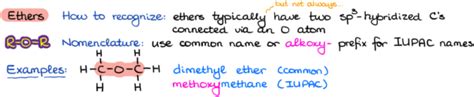 but not always.
Ethers How to recognize: ethers typically have two sp³-hybridized C's
connected via an O atom
R-O-R Nomenclature: use common name or alkoxy- prefix for IUPAC names
Examples: H H
H-C-O-C-H dimethyl ether (common)
H H methoxymethane (IUPAC)